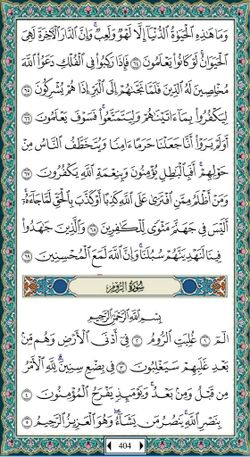 وَمَا هَٰذِهِ الْحَيَوٰةُ الدُّنْيَا إِلَّا لَهْوٌ وَلَعِبٌ ۚ وَإِنَّ الدَّارَ الْآخِرَةَ لَهِيَ
الْحَيَوَانُ ۚ لَوْ كَانُوا يَعْلَمُونَ ٦٤ فَإِذَا رَكِبُوا فِي الْفُلْكِ دَعَوُا اللَّهَ
مُخْلِصِينَ لَهُ الدِّينَ فَلَمَّا نَجَّىٰهُمْ إِلَى الْبَرِّ إِذَا هُمْ يُشْرِكُونَ ٦٥
لِيَكْفُرُوا بِمَا ءَاتَيْنَٰهُمْ وَلِيَتَمَتَّعُوا ۖ فَسَوْفَ يَعْلَمُونَ ٦٦
أَوَلَمْ يَرَوْا أَنَّا جَعَلْنَا حَرَمًا ءَامِنًا وَيُتَخَطَّفُ النَّاسُ مِنْ
حَوْلِهِمْ ۚ أَفَبِالْبَٰطِلِ يُؤْمِنُونَ وَبِنِعْمَةِ اللَّهِ يَكْفُرُونَ ٦٧
وَمَنْ أَظْلَمُ مِمَّنِ افْتَرَىٰ عَلَى اللَّهِ كَذِبًا أَوْ كَذَّبَ بِالْحَقِّ لَمَّا جَاءَهُ ۚ
أَلَيْسَ فِي جَهَنَّمَ مَثْوًى لِلْكَٰفِرِينَ ٦٨ وَالَّذِينَ جَٰهَدُوا
فِينَا لَنَهْدِيَنَّهُمْ سُبُلَنَا ۚ وَإِنَّ اللَّهَ لَمَعَ الْمُحْسِنِينَ ٦٩
سُورَةُ الرُّومِ
بِسْمِ اللَّهِ الرَّحْمَٰنِ الرَّحِيمِ
الٓمٓ ١ غُلِبَتِ الرُّومُ ٢ فِي أَدْنَى الْأَرْضِ وَهُم مِّنۢ
بَعْدِ غَلَبِهِمْ سَيَغْلِبُونَ ٣ فِي بِضْعِ سِنِينَ ۗ لِلَّهِ الْأَمْرُ
مِن قَبْلُ وَمِنۢ بَعْدُ ۚ وَيَوْمَئِذٍ يَفْرَحُ الْمُؤْمِنُونَ ٤
بِنَصْرِ اللَّهِ ۚ يَنصُرُ مَن يَشَاءُ ۖ وَهُوَ الْعَزِيزُ الرَّحِيمُ ٥
404